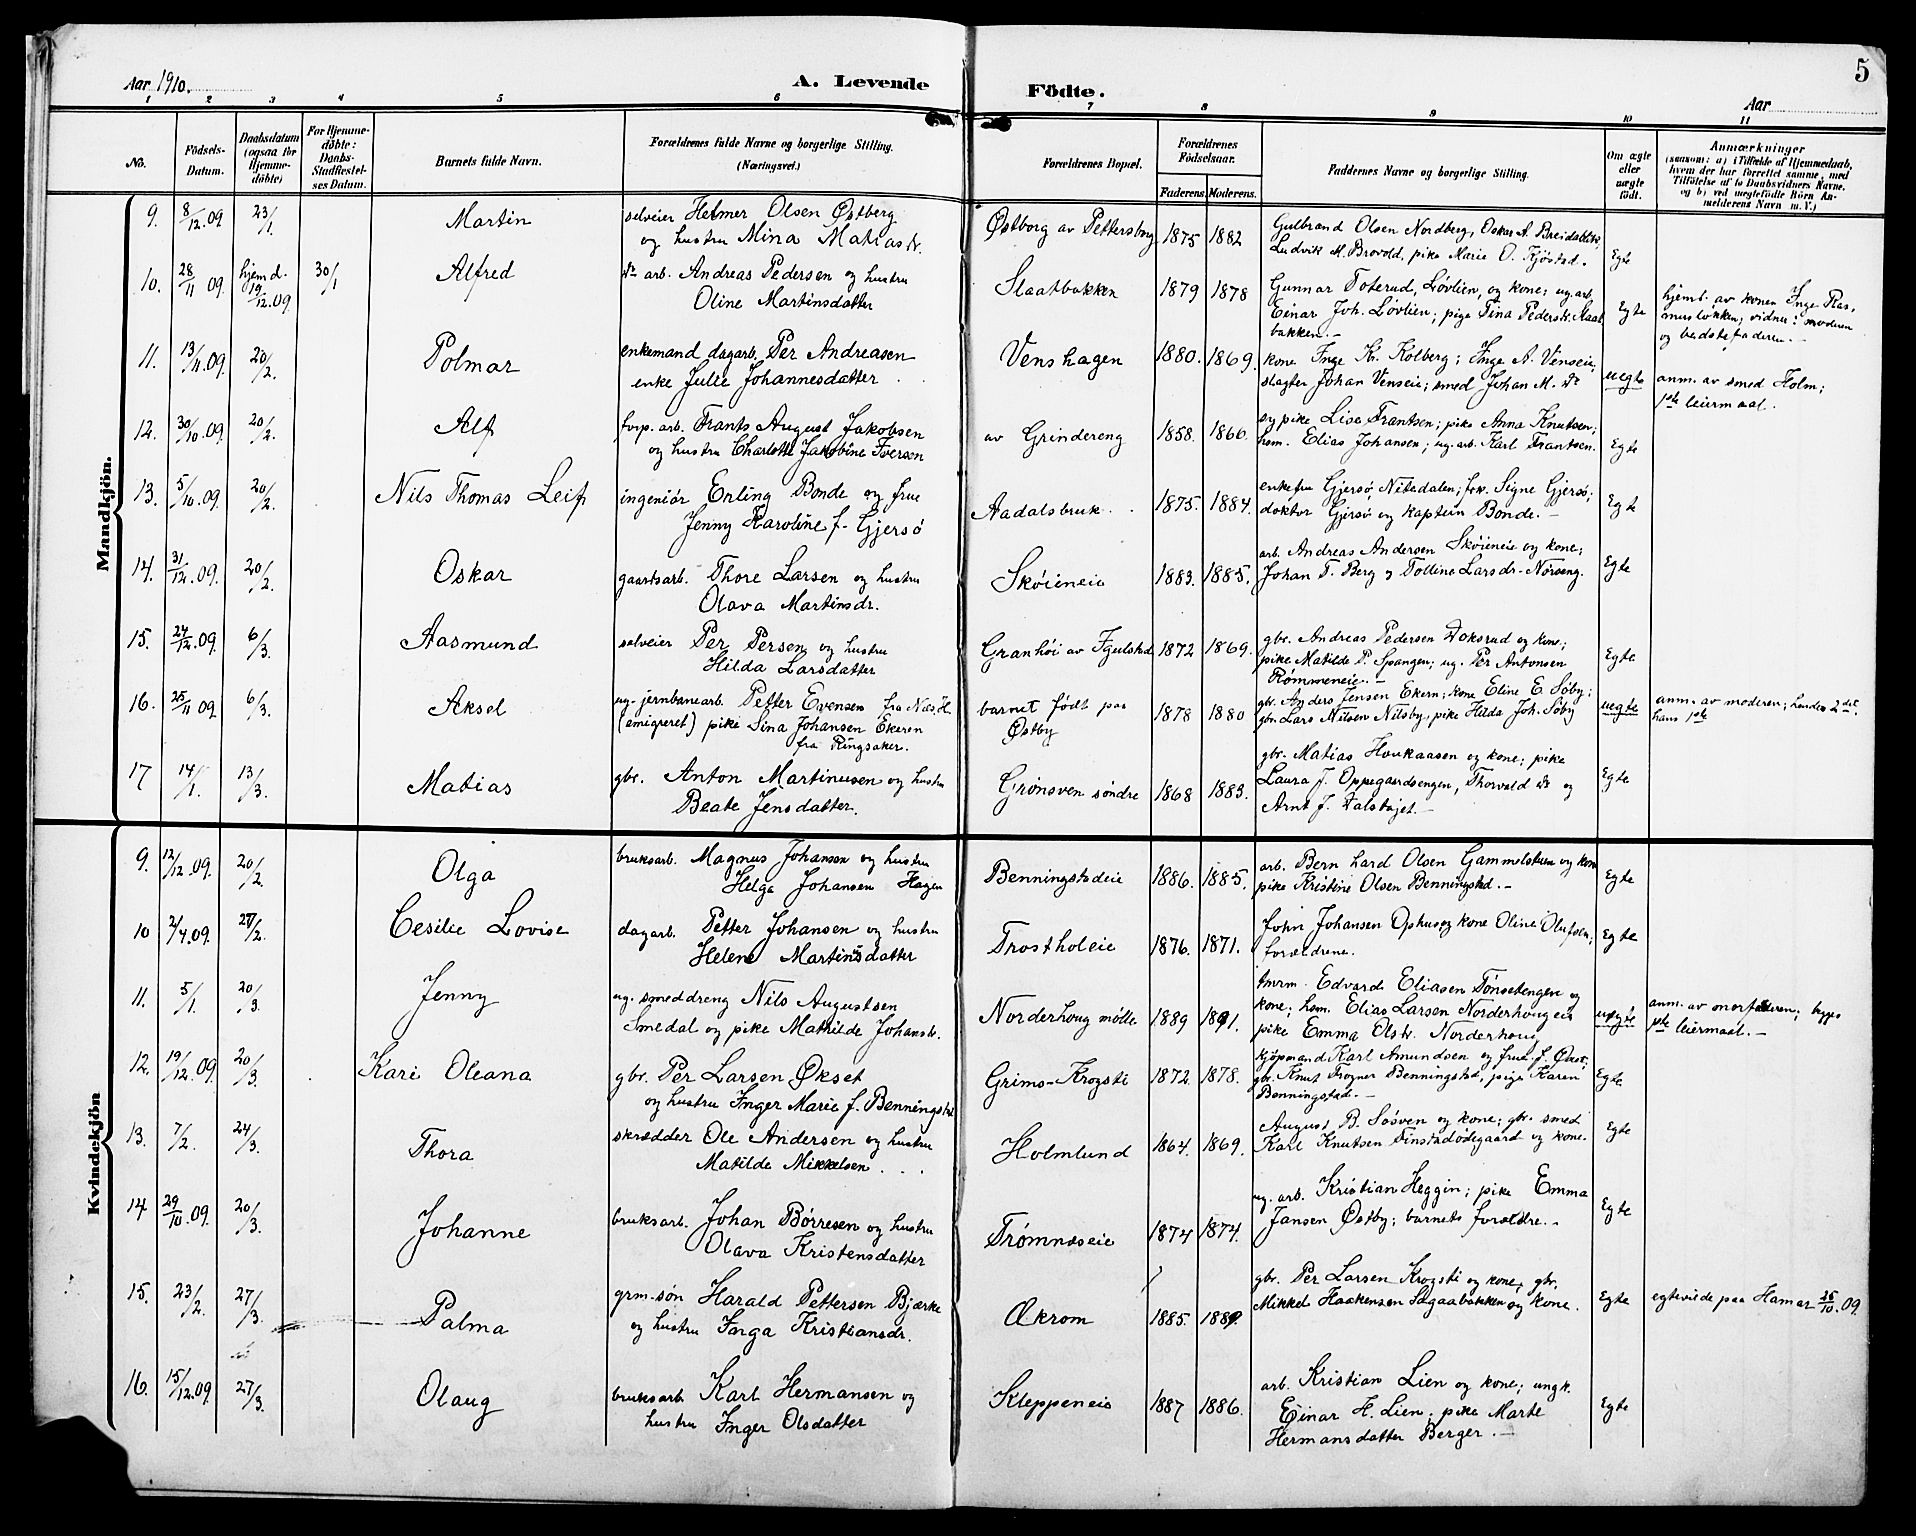 5
Aar 1910.
A. Levende Födte.
Aar
1 2 3 4 5 6 7 8 9 10 11
No.
Födsels-Datum.
Daabsdatum (ogsaa for Hjemme-döbte)
For Hjemme-döbte: Daabs-Stadfæstel-ses Datum.
Barnets fulde Navn.
Forældrenes fulde Navne og borgerlige Stilling.
(Næringsvei.)
Forældrenes Bopæl.
Forældrenes Födselsaar.
Faderens. Moderens.
Faddernes Navne og borgerlige Stilling.
Om ægte eller uægte födt.
Anmærkninger
(saasom: a) i Tilfælde af Hjemmedaab,
hvem der har forrettet samme, med
Tilföielse af to Daabsvidners Navne,
og b) ved uægtefödte Börn An-
melderens Navn m. V.)
Mandkjön.
9. 8/12.09 23/1. Martin selveier Helmer Olsen Østberg
og hustru Mina Matiasdr.
Østborg av Pettersborg 1875 1882 Gulbrand Olsen Nordberg, Oskar A. Breidablik,
Ludvik M. Brovold, pike Marie O. Kjøstad. Egte
10. 28/11 09. hjemd. 19/12.09 30/1 Alfred do arb. Andreas Pedersen og hustru
Oline Martinsdatter
Slaatbakken 1879 1878 Gunnar Toterud, Løvlien, og kone; ug. arb.
Einar Joh. Løvlien; pige Tina Pedersdr. Slaat
bakken.- Egte
hjemb. av konen Inge Ras,
musløkken; vidner: moderen
og bedstefaderen.-
11. 13/11.09. 20/2. Polmar enkemand dagarb. Per Andreasen
enke Julie Johannesdatter
Venshagen 1880. 1869. kone Inge Kr. Kolberg; Inge A. Venseie,
slagter Johan Venseie; smed Johan M. do uegte
anm. av smed Holm;
1ste leiermaal.
12. 30/10.09. 20/2. Alf forp. arb. Frants August Jakobsen
og hustru Charlotte Jakobine Iversen
av Grindereng 1858. 1866. sy pike Lisa Frantsen; pike Anna Knutsen;
hsm. Elias Johansen; ug. arb. Karl Frantsen. Egte
13. 5/10.09. 20/2. Nils Thomas Leif ingeniör Erling Bonde og frue
Jenny Karoline f. Gjersö
Aadalsbruk. 1875. 1884. enkefru Gjersö, Nitedalen; frk. Signe Gjersö;
doktor Gjersö og kaptein Bonde.- Egte
14. 31/12.09. 20/2. Oskar gaardsarb. Thore Larsen og hustru
Olava Martinsdr.
Sköieneie 1883. 1885. arb. Andreas Andersen Sköieneie og kone;
Johan T. Berg & Tolline Larsdr. Nörseng. Egte
15. 24/12.09. 6/3. Aasmund selveier Per Persen og hustru
Hilda Larsdatter
Granhöi av Fjulstad 1872 1869. gbr. Andreas Pedersen Doksrud og kone;
pike Matilde P. Spangen; ug. Per Antonsen
Römmeneie.- Egte
16. 25/11 09. 6/3. Aksel ug. jernbanearb. Petter Evensen fra Næs, H.
(emigreret) pike Dina Johansen Ekeren
fra Ringsaker.
barnet født paa
Østby 1878 1880 gbr. Anders Jensen Ekern; kone Eline E. Söby;
gbr. Lars Nilsen Nilsby, pike Hilda Joh. Söby uegte
anm. av moderen; hendes 2det.
hans 1ste
17 14/1. 13/3. Matias gbr. Anton Martinusen og hustru
Beate Jensdatter.
Grönsven söndre 1868 1883. gbr. Matias Houkaasen og kone; pike
Laura J. Oppegaardsengen, Thorvald do og
Arnt J. Dalshøjet.- Egte
Kvindekjön
9. 12/12.09. 20/2. Olga bruksarb. Magnus Johansen og hustru
Helga Johansen Hagen
Benningstadeie 1886. 1885. arb. Bernhard Olsen Gammelstuen og kone
pike Kristine Olsen Benningstad.- Egte
10 2/4.09. 27/2. Cesilie Lovise dagarb. Petter Johansen og hustru
Helene Martinsdatter
Trostholeie 1876. 1871. John Johansen Ophus og kone Oline Olufsen;
forældrene. Egte
11. 5/1. 20/3. Jenny ug. smeddreng Nils Augustsen
Smedal og pike Mathilde Johansdr.
Norderhoug mölle 1889 1891. tmrm. Edvard Eliasen Tönsetengen og
kone; hsm. Elias Larsen Norderhougeie
pike Emma Olsdr. Norderhoug uegte
anm. av morfaderen; begges
1ste leiermaal.-
12. 19/12.09. 20/3. Kari Oleana gbr. Per Larsen Økset
og hustru Inger Marie f. Benningstad
Grims-Krogsti 1872. 1878. kjöpmand Karl Amundsen og frue f. Økset;
gbr. Knut Frogner Benningstad, pige Karen
Benningstad.- Egte
13. 7/2. 24/3. Thora skrædder Ole Andersen og hustru
Matilde Mikkelsen
Holmlund 1864. 1869. August B. Sösven og kone; gbr. smed
Karl Knutsen Finstadödegaard og kone. Egte
14 29/10.09. 20/3. Johanne bruksarb. Johan Börresen og hustru
Olava Kristensdatter
Trömnæseie 1874 1874. ug. arb. Kristian Heggin; pike Emma
Jansen Østby; barnets forældre.- Egte
15. 23/2. 27/3. Palma grm. sön Harald Pettersen Bjærke
og hustru Inga Kristiansdr.
Økrom 1885. 1889. gbr. Per Larsen Krogsti og kone, gbr.
Mikkel Haakensen Sagaabakken og kone. Egte
egteviede paa Hamar 26/10.09.
16. 15/12.09. 27/3. Olaug bruksarb. Karl Hermansen og
hustru Inger Olsdatter
Kleppeneie 1887 1886. arb. Kristian Lien og kone; ungk.
Einar H. Lien; pike Marte
Hermansdatter Berger.- Egte